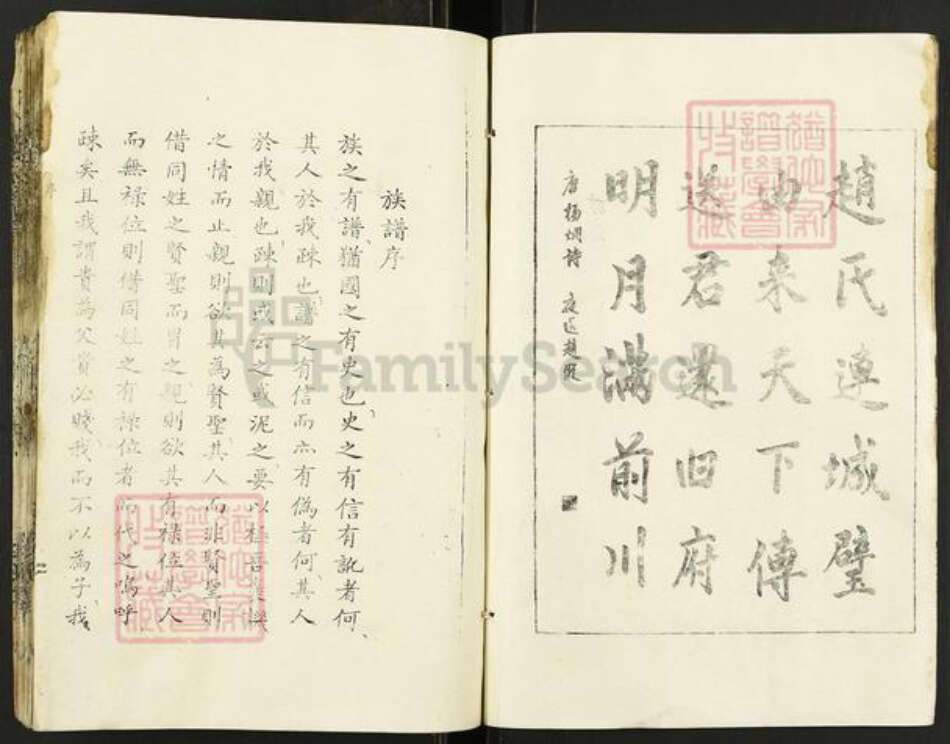 趙氏連城璧
由来天下傳
送君還旧府
明月滿前川
唐楊烱詩 夜送趙縱
族譜序
族之有譜猶國之有史也史之有信有訛者何
其人於我疎也譜之有信而亦有偽者何其人
於我親也疎則或公之或泥之要以
之情而止親則欲其為賢聖其人而非賢聖則
借同姓之賢聖而冒之親則欲其有祿位其人
而無祿位則借同姓之有祿位者而代之嗚呼
疎矣且我謂貴為父貴必賤我而不以為子我
猶他家譜學會收藏
猶他家譜學會收藏
FamilySearch